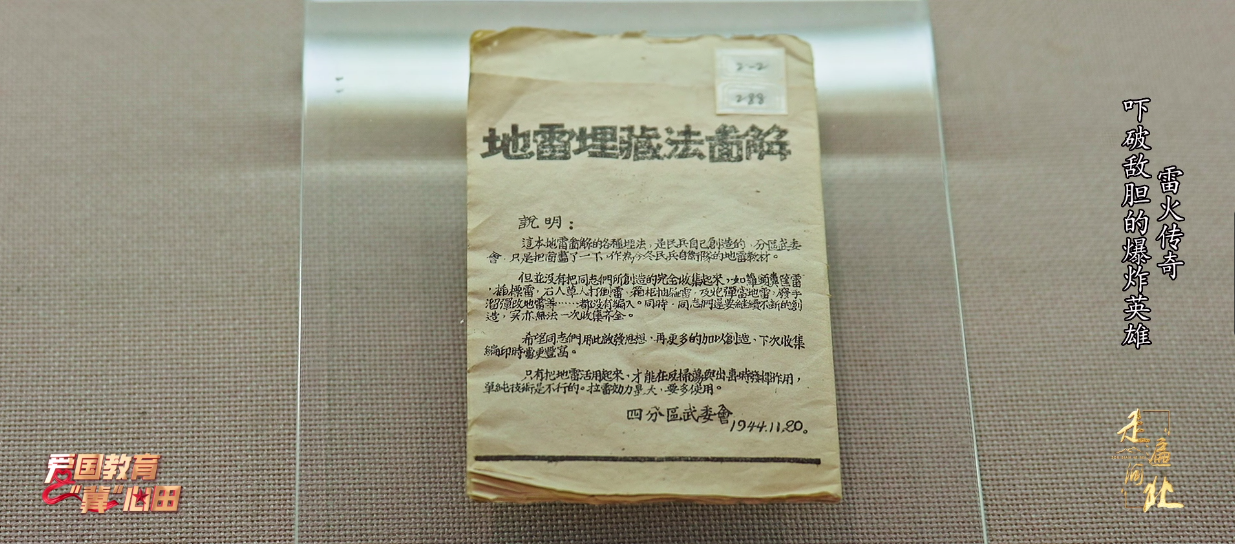 2-2
2-88
地雷埋藏法啚解
說明：
這本地雷啚解的各種埋法，是民兵自己創造的，分區武委
會，只是把啚畵了一下，作為今冬民兵自衛隊的地雷教材。
但並没有把同志們所創造的完全收集起來，如
雷，石人草人打倒雷，
都没有編入。同時，同志們還要繼續不斷的創
造，實亦無法一次收集齐全。
希望同志們用此啟發思想，再更多的加以創造，下次收集
編印時當更豐富。
只有把地雷活用起來，才能在反掃蕩與出擊時發揮作用，
單純技術是不行的。拉雷効力最大，要多使用。
四分區武委會
1944.11.20。
雷火传奇
吓破敌胆的爆炸英雄
爱国教育
“冀”心田
走遍河北